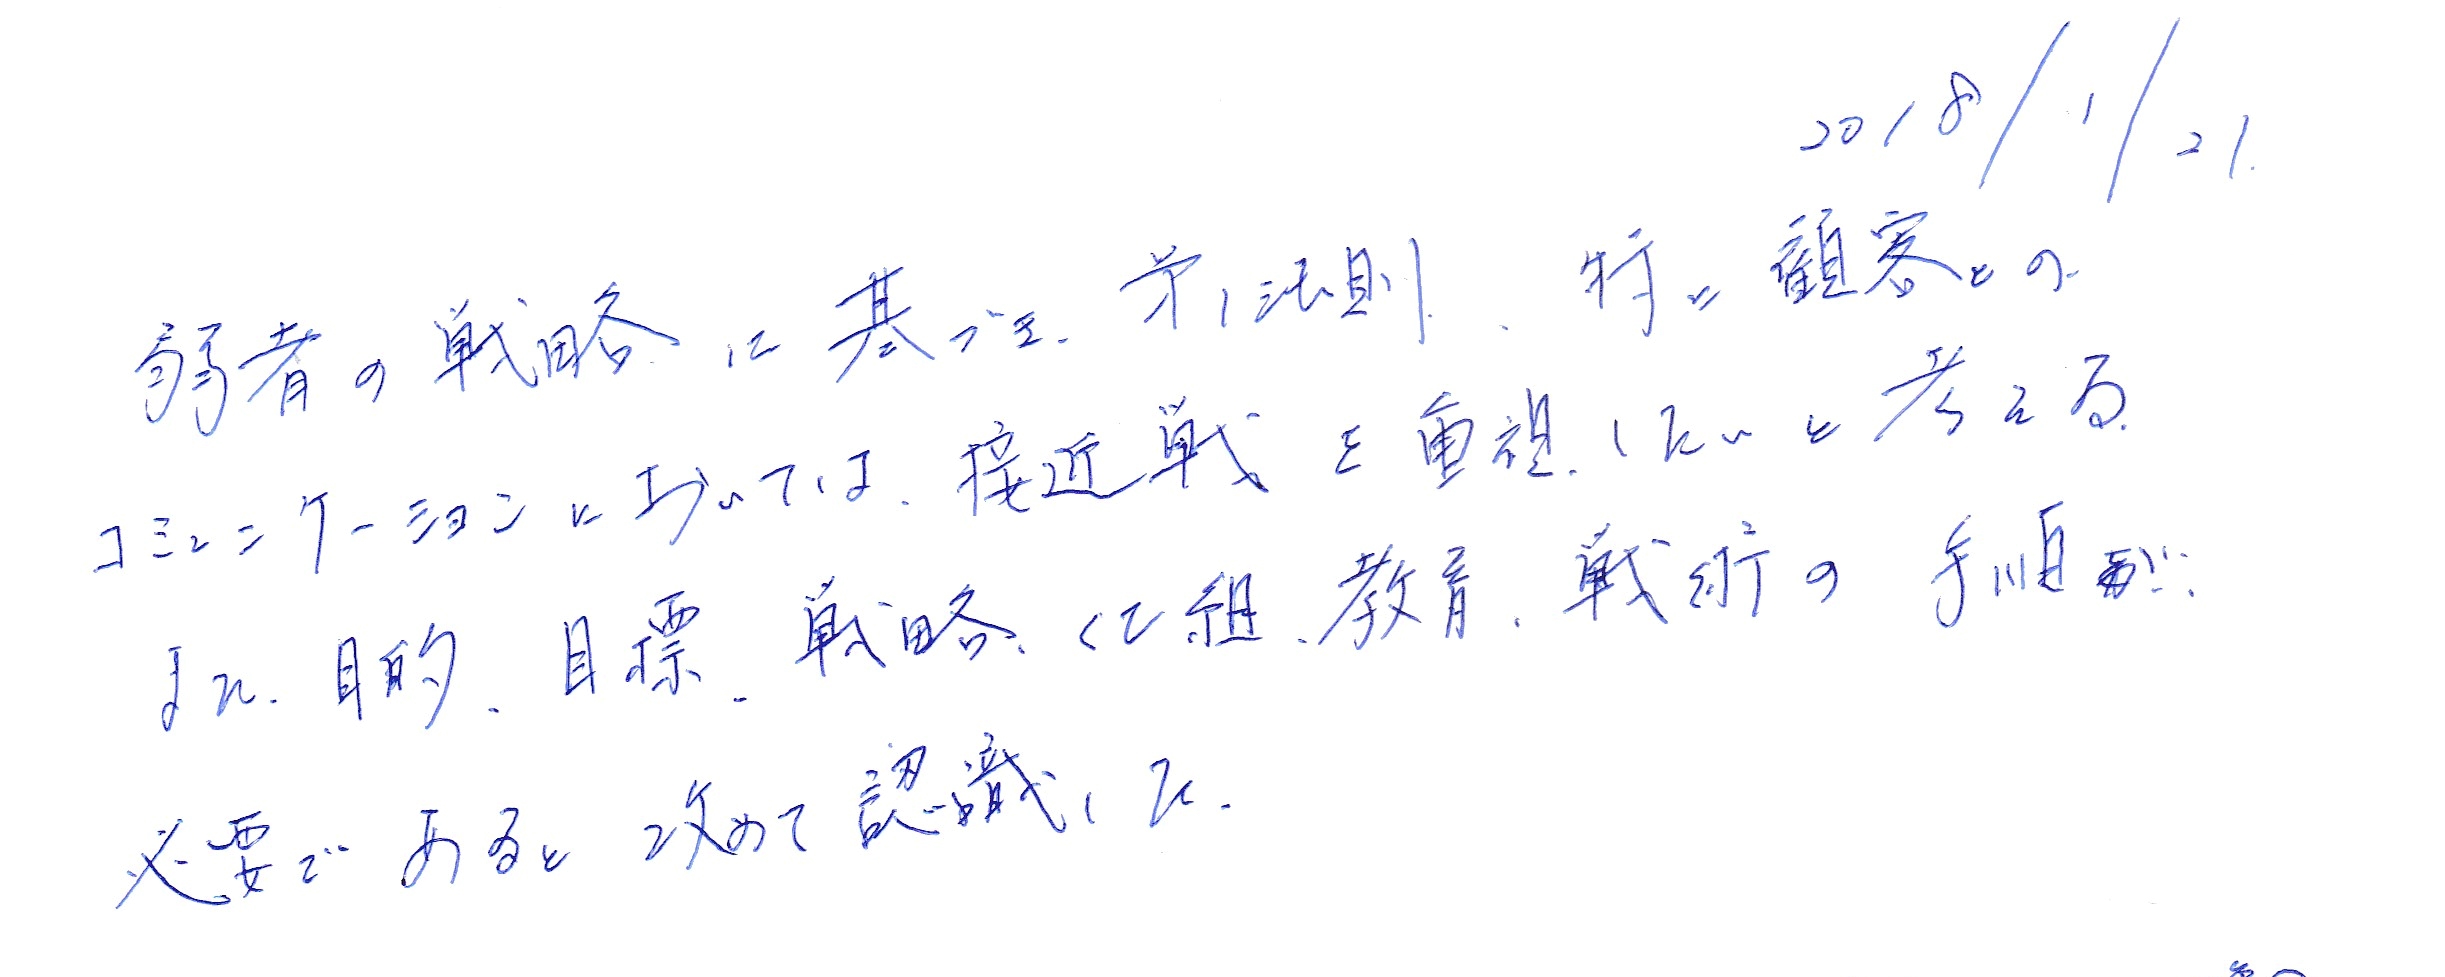 2018/1/21.
弱者の戦略に基づき、第1法則、特に顧客との
コミュニケーションにおいては、接近戦を重視したいと考える。
また、目的、目標、戦略、仕組、教育、戦術の手順が、
必要であると改めて認識した。